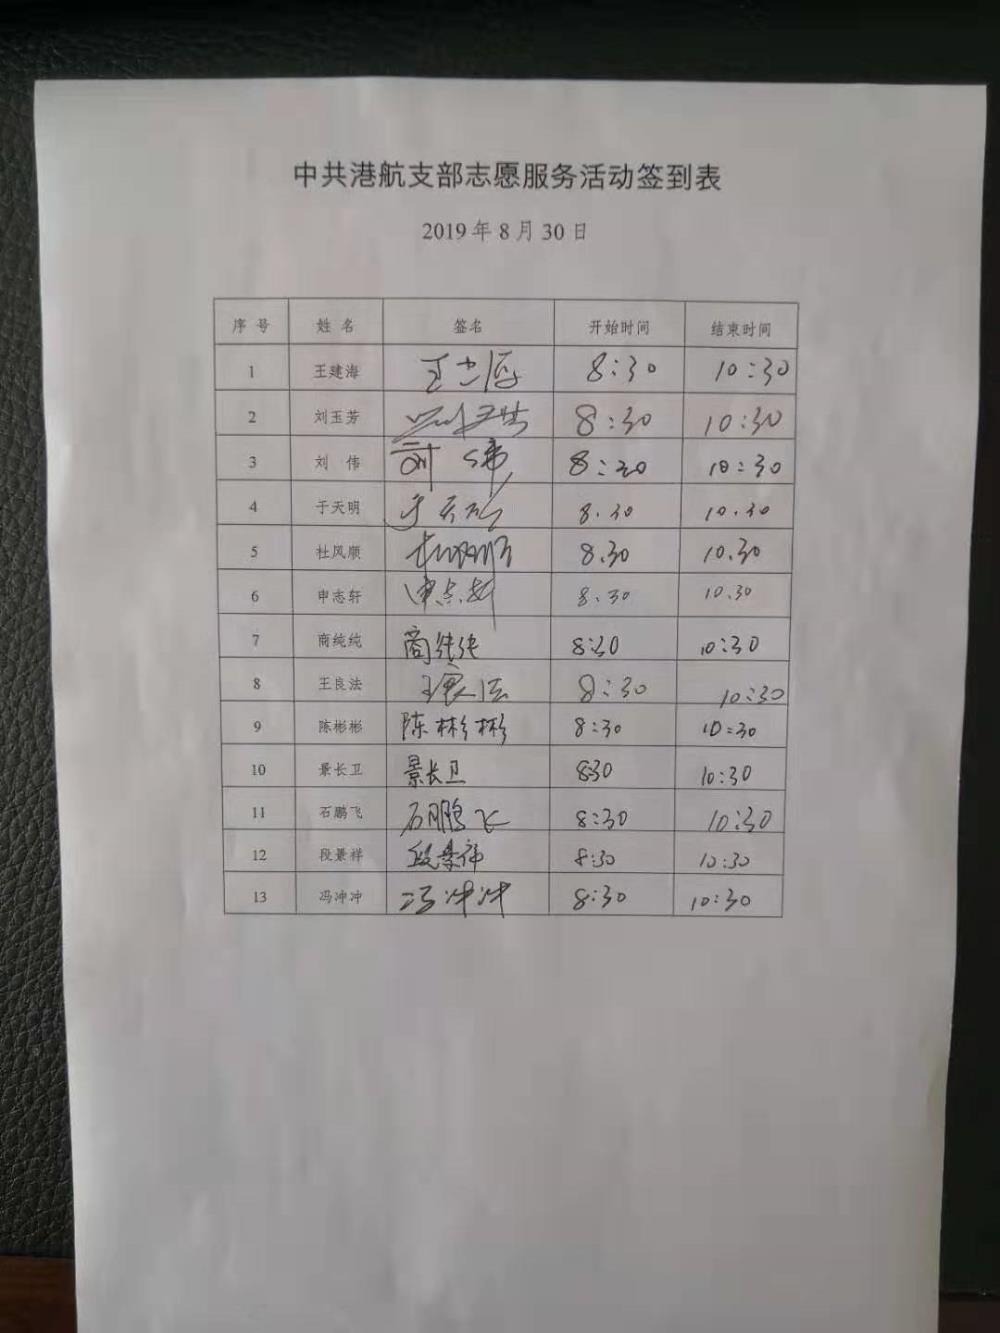 中共港航支部志愿服务活动签到表
2019年8月30日
序 号 姓 名 签名 开始时间 结束时间
1 王建海 王建海 8:30 10:30
2 刘玉芳 刘玉芳 8:30 10:30
3 刘 伟 刘 伟 8:30 10:30
4 于天明 于天明 8.30 10.30
5 杜风顺 杜风顺 8.30 10.30
6 申志轩 申志轩 8.30 10.30
7 商纯纯 商纯纯 8:30 10:30
8 王良法 王良法 8:30 10:30
9 陈彬彬 陈彬彬 8:30 10:30
10 景长卫 景长卫 830 10:30
11 石鹏飞 石鹏飞 8:30 10:30
12 段景祥 段景祥 8:30 10:30
13 冯冲冲 冯冲冲 8:30 10:30